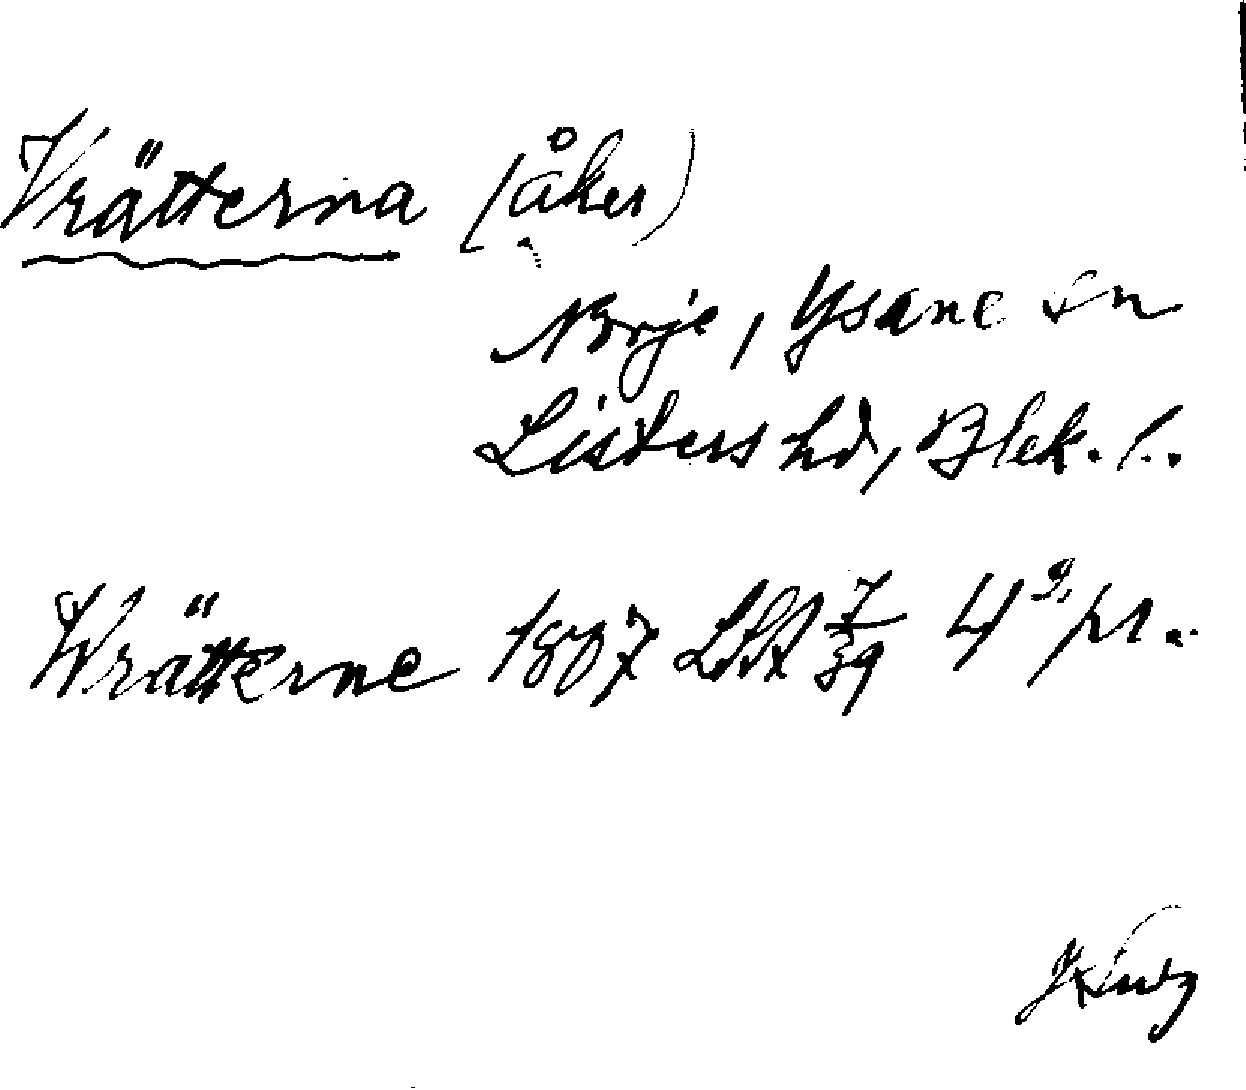 Vrätterna (åker)
Norje, Ysane sn
Listers hd, Blek. l.
Wrätterne 1807 LSA 7/39 4°, pr.